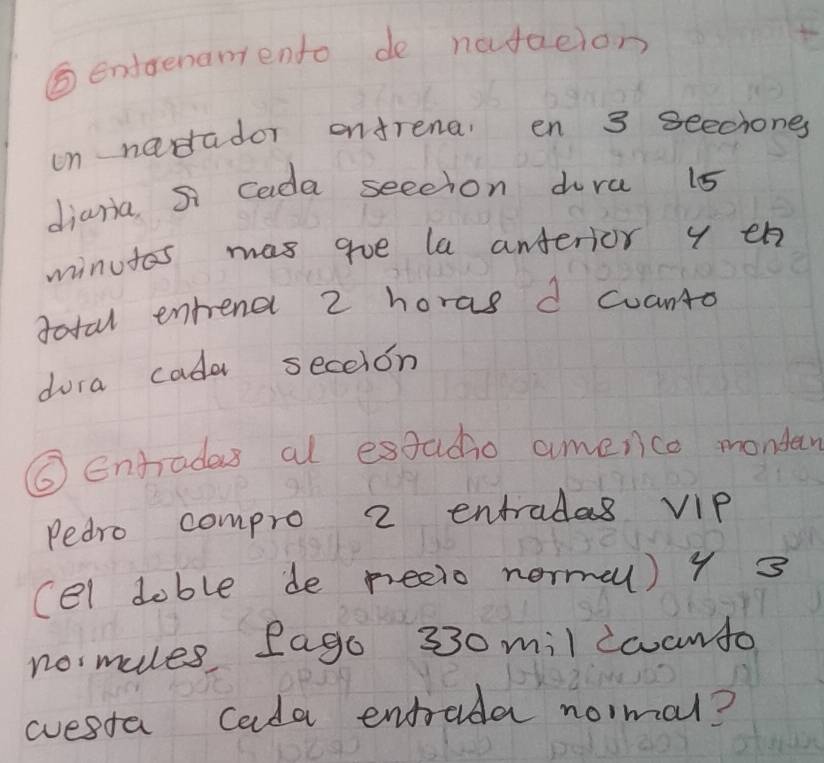 ⑤ entrenamiento de natacion
un nadador entrena en 3 secciones
diaria. Si cada seccion dura 15
minutos mas que la anterior y en
total entrena 2 horas ¿ cuanto
dura cada sección
⑥ Entradas al estadio americo montan
Pedro compro 2 entradas VIP
(el doble de precio normal) y 3
normales. Pago 330 mil ¿cuanto
cuesta cada entrada normal?